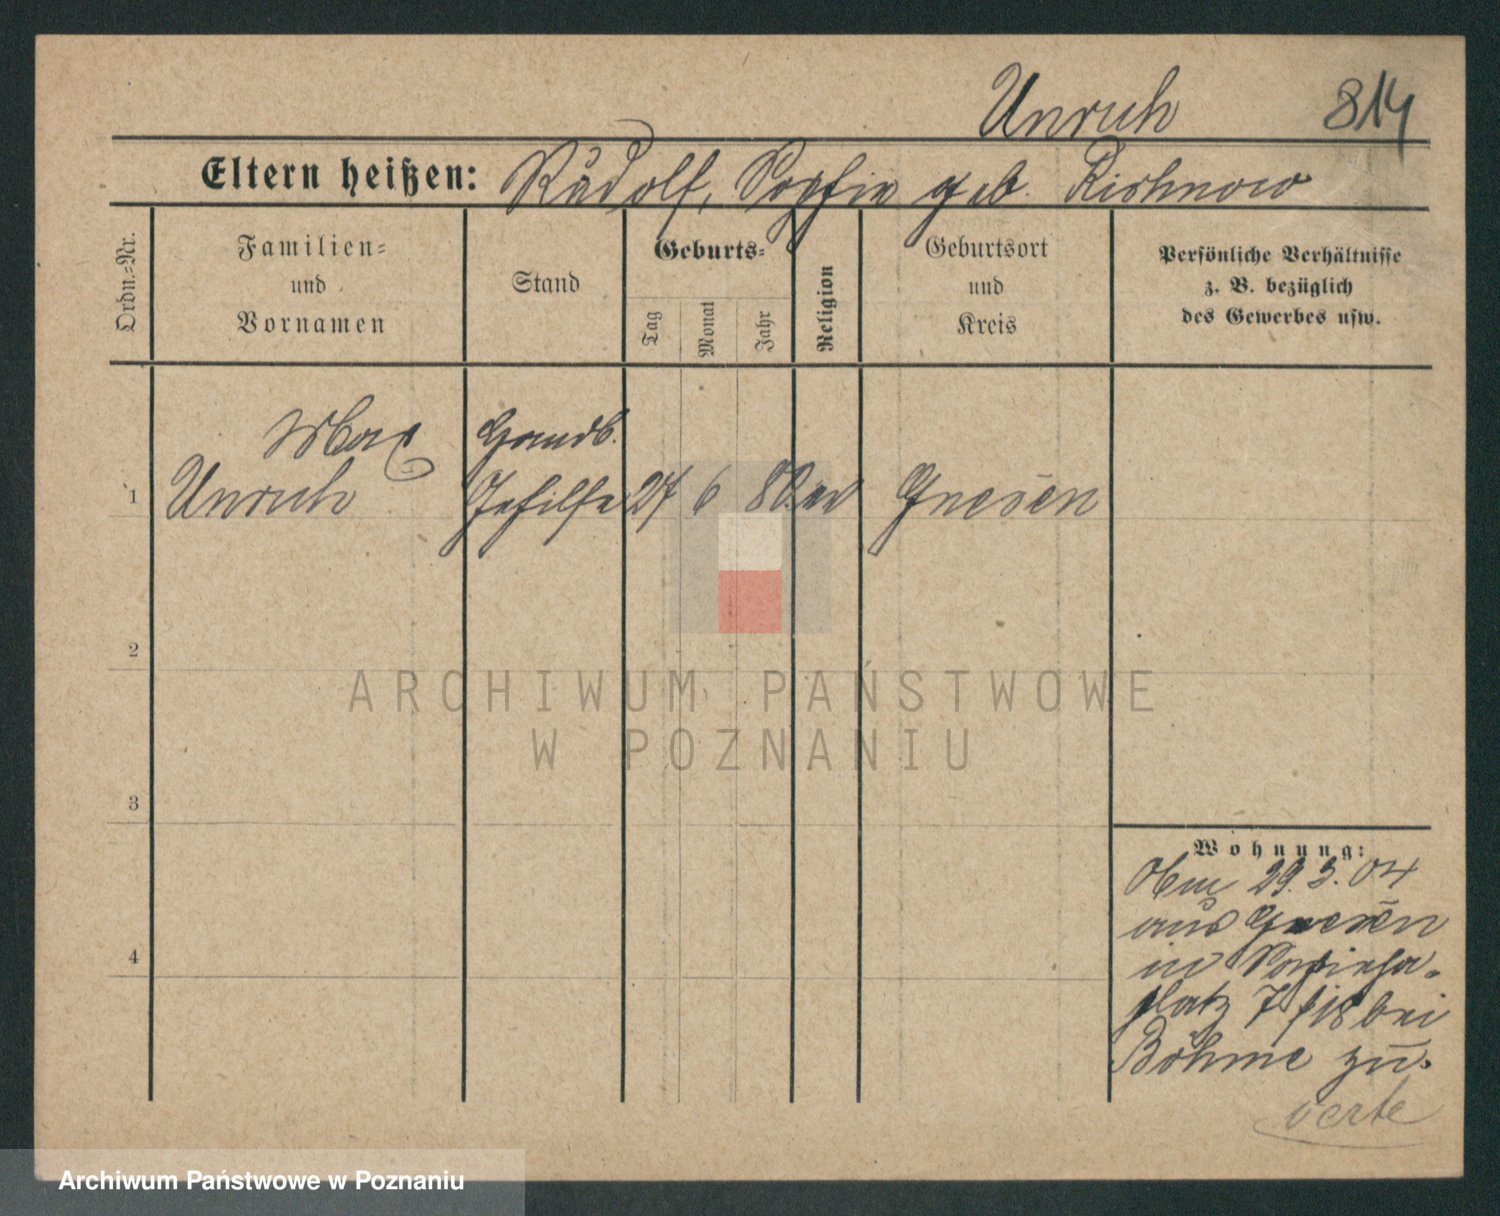 Unruh 814
Eltern heißen: Rudolf, Sophie geb. Rischnow
Ordn.=Nr.
Familien=
und
Vornamen
Stand
Geburts=
Tag
Monat
Jahr
Religion
Geburtsort
und
Kreis
Persönliche Verhältnisse
z. B. bezüglich
des Gewerbes usw.
Max
Handb.
1 Unruh Gehilfe 27 6 80 ev Gnesen
2
ARCHIWUM PAŃSTWOWE
W POZNANIU
3
4
Wohnung:
29.3.04
aus Gnesen
in Sapieha=
platz 7 bei
Böhme zu.
verte
Archiwum Państwowe w Poznaniu